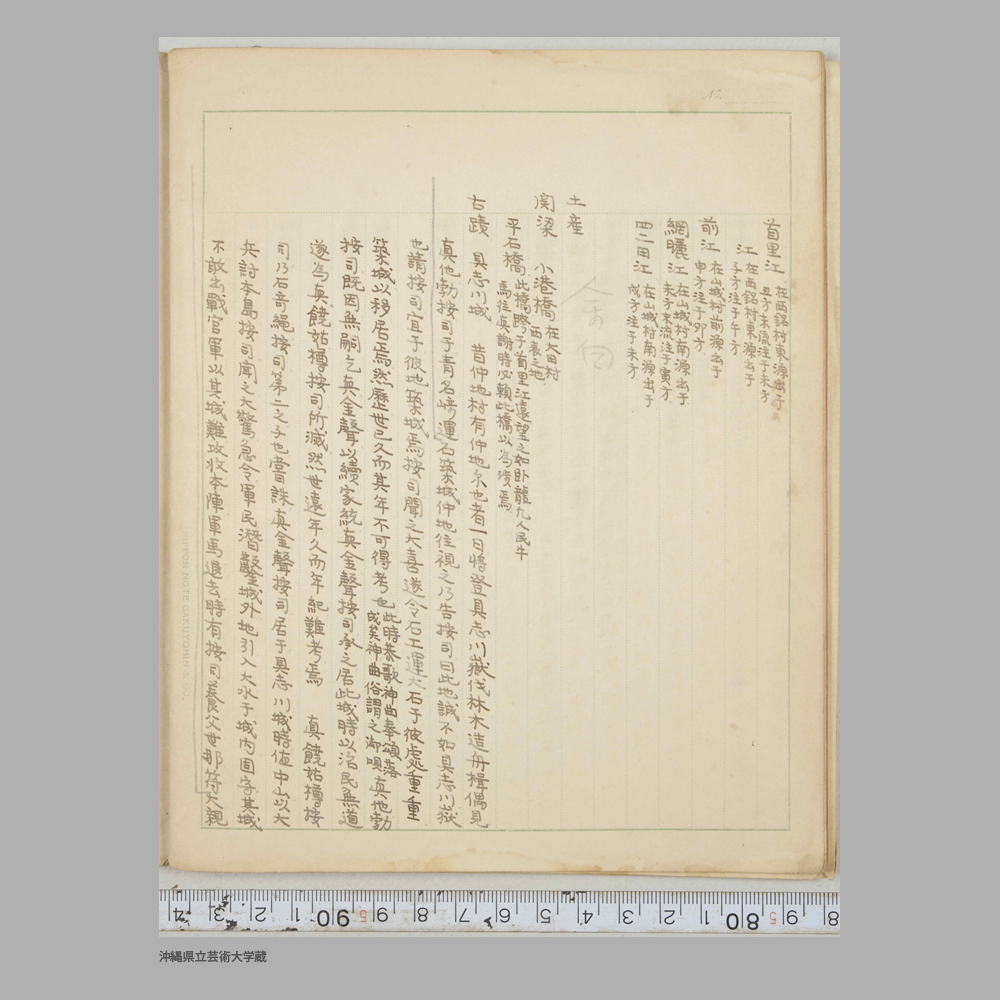 首里江 在西銘村東源出于
丑方未流注于未方
江 在西銘村東源出于
子方注于午方
前江 在山城村前源出于
申方注于卯方
網曬江 在山城村南源出于
未方末流注于寅方
四二田江 在山城村南源出于
戌方注于未方
土産
関梁 小港橋 在大田村
西表之地
平石橋 此橋跨于首里江遠望之如卧龍凡人民牛
馬往真謝時必頼此橋以為渡焉
古蹟 具志川城 昔仲地村有仲地尓也者一日將登具志川嶽伐林木造舟楫偶見
真他勃按司于青名崎運石築城仲地往視之乃告按司曰此地誠不如具志川嶽
也請按司宜于彼地築城焉按司聞之大喜遂令石工運大石于彼處重重
築城以移居焉然歴世已久而其年不可得考也 此時恭歌神曲奉頌落
成矣神曲俗謂之御唄 真他勃
按司既因無嗣乞真金聲以續家統真金聲按司承之居此城時以治民無道
遂為真饒姑樽按司所滅然世遠年久而年紀難考焉 真饒姑樽按
司乃石音縄按司第二之子也嘗誅真金聲按司居于具志川城時值中山以大
兵討本島按司聞之大驚急令軍民潛鑿城外地引入大水于城内固守其城
不敢出戰官軍以其城難攻收本陣軍馬退去時有按司養父世那符大親
HUTON NOTE GAKUYOHIN & CO.
4 3 2 1 90 5 9 8 7 6 5 4 3 2 1 80 5 9 8
沖縄県立芸術大学蔵